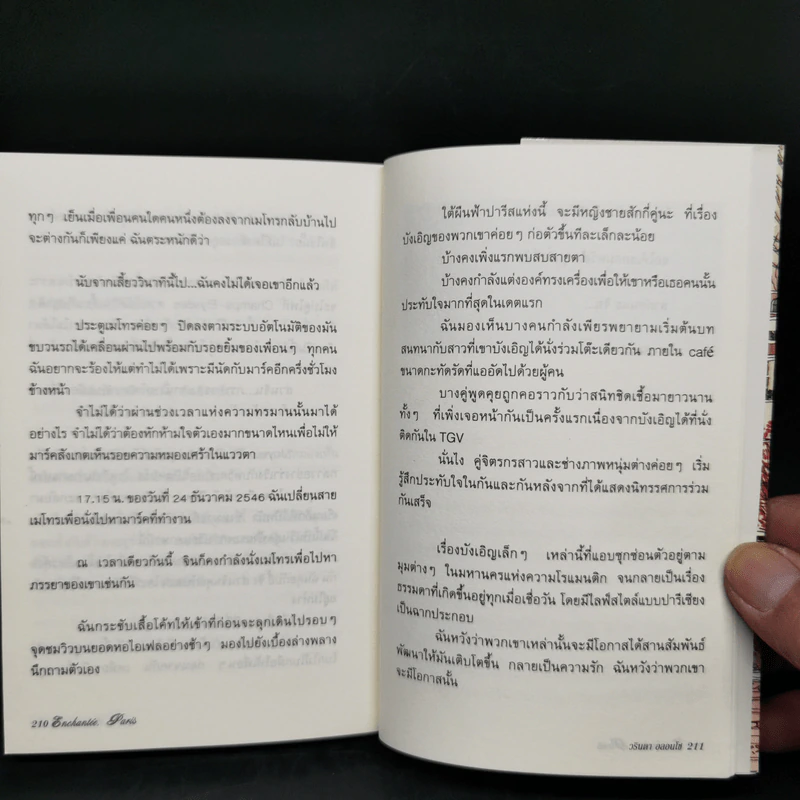 ทุกๆ เย็นเมื่อเพื่อนคนใดคนหนึ่งต้องลงจากเมโทรกลับบ้านไป
จะต่างกันก็เพียงแค่ ฉันตระหนักดีว่า
นับจากเสี้ยววินาทีนี้ไป...ฉันคงไม่ได้เจอเขาอีกแล้ว
ประตูเมโทรค่อยๆ ปิดลงตามระบบอัตโนมัติของมัน
ขบวนรถได้เคลื่อนผ่านไปพร้อมกับรอยยิ้มของเพื่อนๆ ทุกคน
ฉันอยากจะร้องไห้แต่ทำไม่ได้เพราะมีนัดกับมาร์คอีกครึ่งชั่วโมง
ข้างหน้า
จำไม่ได้ว่าผ่านช่วงเวลาแห่งความทรมานนั้นมาได้
อย่างไร จำไม่ได้ว่าต้องหักห้ามใจตัวเองมากขนาดไหนเพื่อไม่ให้
มาร์คสังเกตเห็นรอยความหมองเศร้าในแววตา
17.15 น. ของวันที่ 24 ธันวาคม 2546 ฉันเปลี่ยนสาย
เมโทรเพื่อนั่งไปหามาร์คที่ทำงาน
ณ เวลาเดียวกันนี้ จินก็คงกำลังนั่งเมโทรเพื่อไปหา
ภรรยาของเขาเช่นกัน
ฉันกระชับเสื้อโค้ทให้เข้าที่ก่อนจะลุกเดินไปรอบๆ
จุดชมวิวบนยอดหอไอเฟลอย่างช้าๆ มองไปยังเบื้องล่างพลาง
นึกถามตัวเอง
210 Enchantée, Paris
ใต้ผืนฟ้าปารีสแห่งนี้ จะมีหญิงชายสักกี่คู่นะ ที่เรื่อง
บังเอิญของพวกเขาค่อยๆ ก่อตัวขึ้นทีละเล็กละน้อย
บ้างคงเพิ่งแรกพบสบสายตา
บ้างคงกำลังแต่งองค์ทรงเครื่องเพื่อให้เขาหรือเธอคนนั้น
ประทับใจมากที่สุดในเดตแรก
ฉันมองเห็นบางคนกำลังเพียรพยายามเริ่มต้นบท
สนทนากับสาวที่เขาบังเอิญได้นั่งร่วมโต๊ะเดียวกัน ภายใน café
ขนาดกะทัดรัดที่แออัดไปด้วยผู้คน
บางคู่พูดคุยถูกคอราวกับว่าสนิทชิดเชื้อมายาวนาน
ทั้งๆ ที่เพิ่งเจอหน้ากันเป็นครั้งแรกเนื่องจากบังเอิญได้ที่นั่ง
ติดกันใน TGV
นั่นไง คู่จิตรกรสาวและช่างภาพหนุ่มต่างค่อยๆ เริ่ม
รู้สึกประทับใจในกันและกันหลังจากที่ได้แสดงนิทรรศการร่วม
กันเสร็จ
เรื่องบังเอิญเล็กๆ เหล่านี้ที่แอบซุกซ่อนตัวอยู่ตาม
มุมต่างๆ ในมหานครแห่งความโรแมนติก จนกลายเป็นเรื่อง
ธรรมดาที่เกิดขึ้นอยู่ทุกเมื่อเชื่อวัน โดยมีไลฟ์สไตล์แบบปารีเซียง
เป็นฉากประกอบ
ฉันหวังว่าพวกเขาเหล่านั้นจะมีโอกาสได้สานสัมพันธ์
พัฒนาให้มันเติบโตขึ้น กลายเป็นความรัก ฉันหวังว่าพวกเขา
จะมีโอกาสนั้น
211